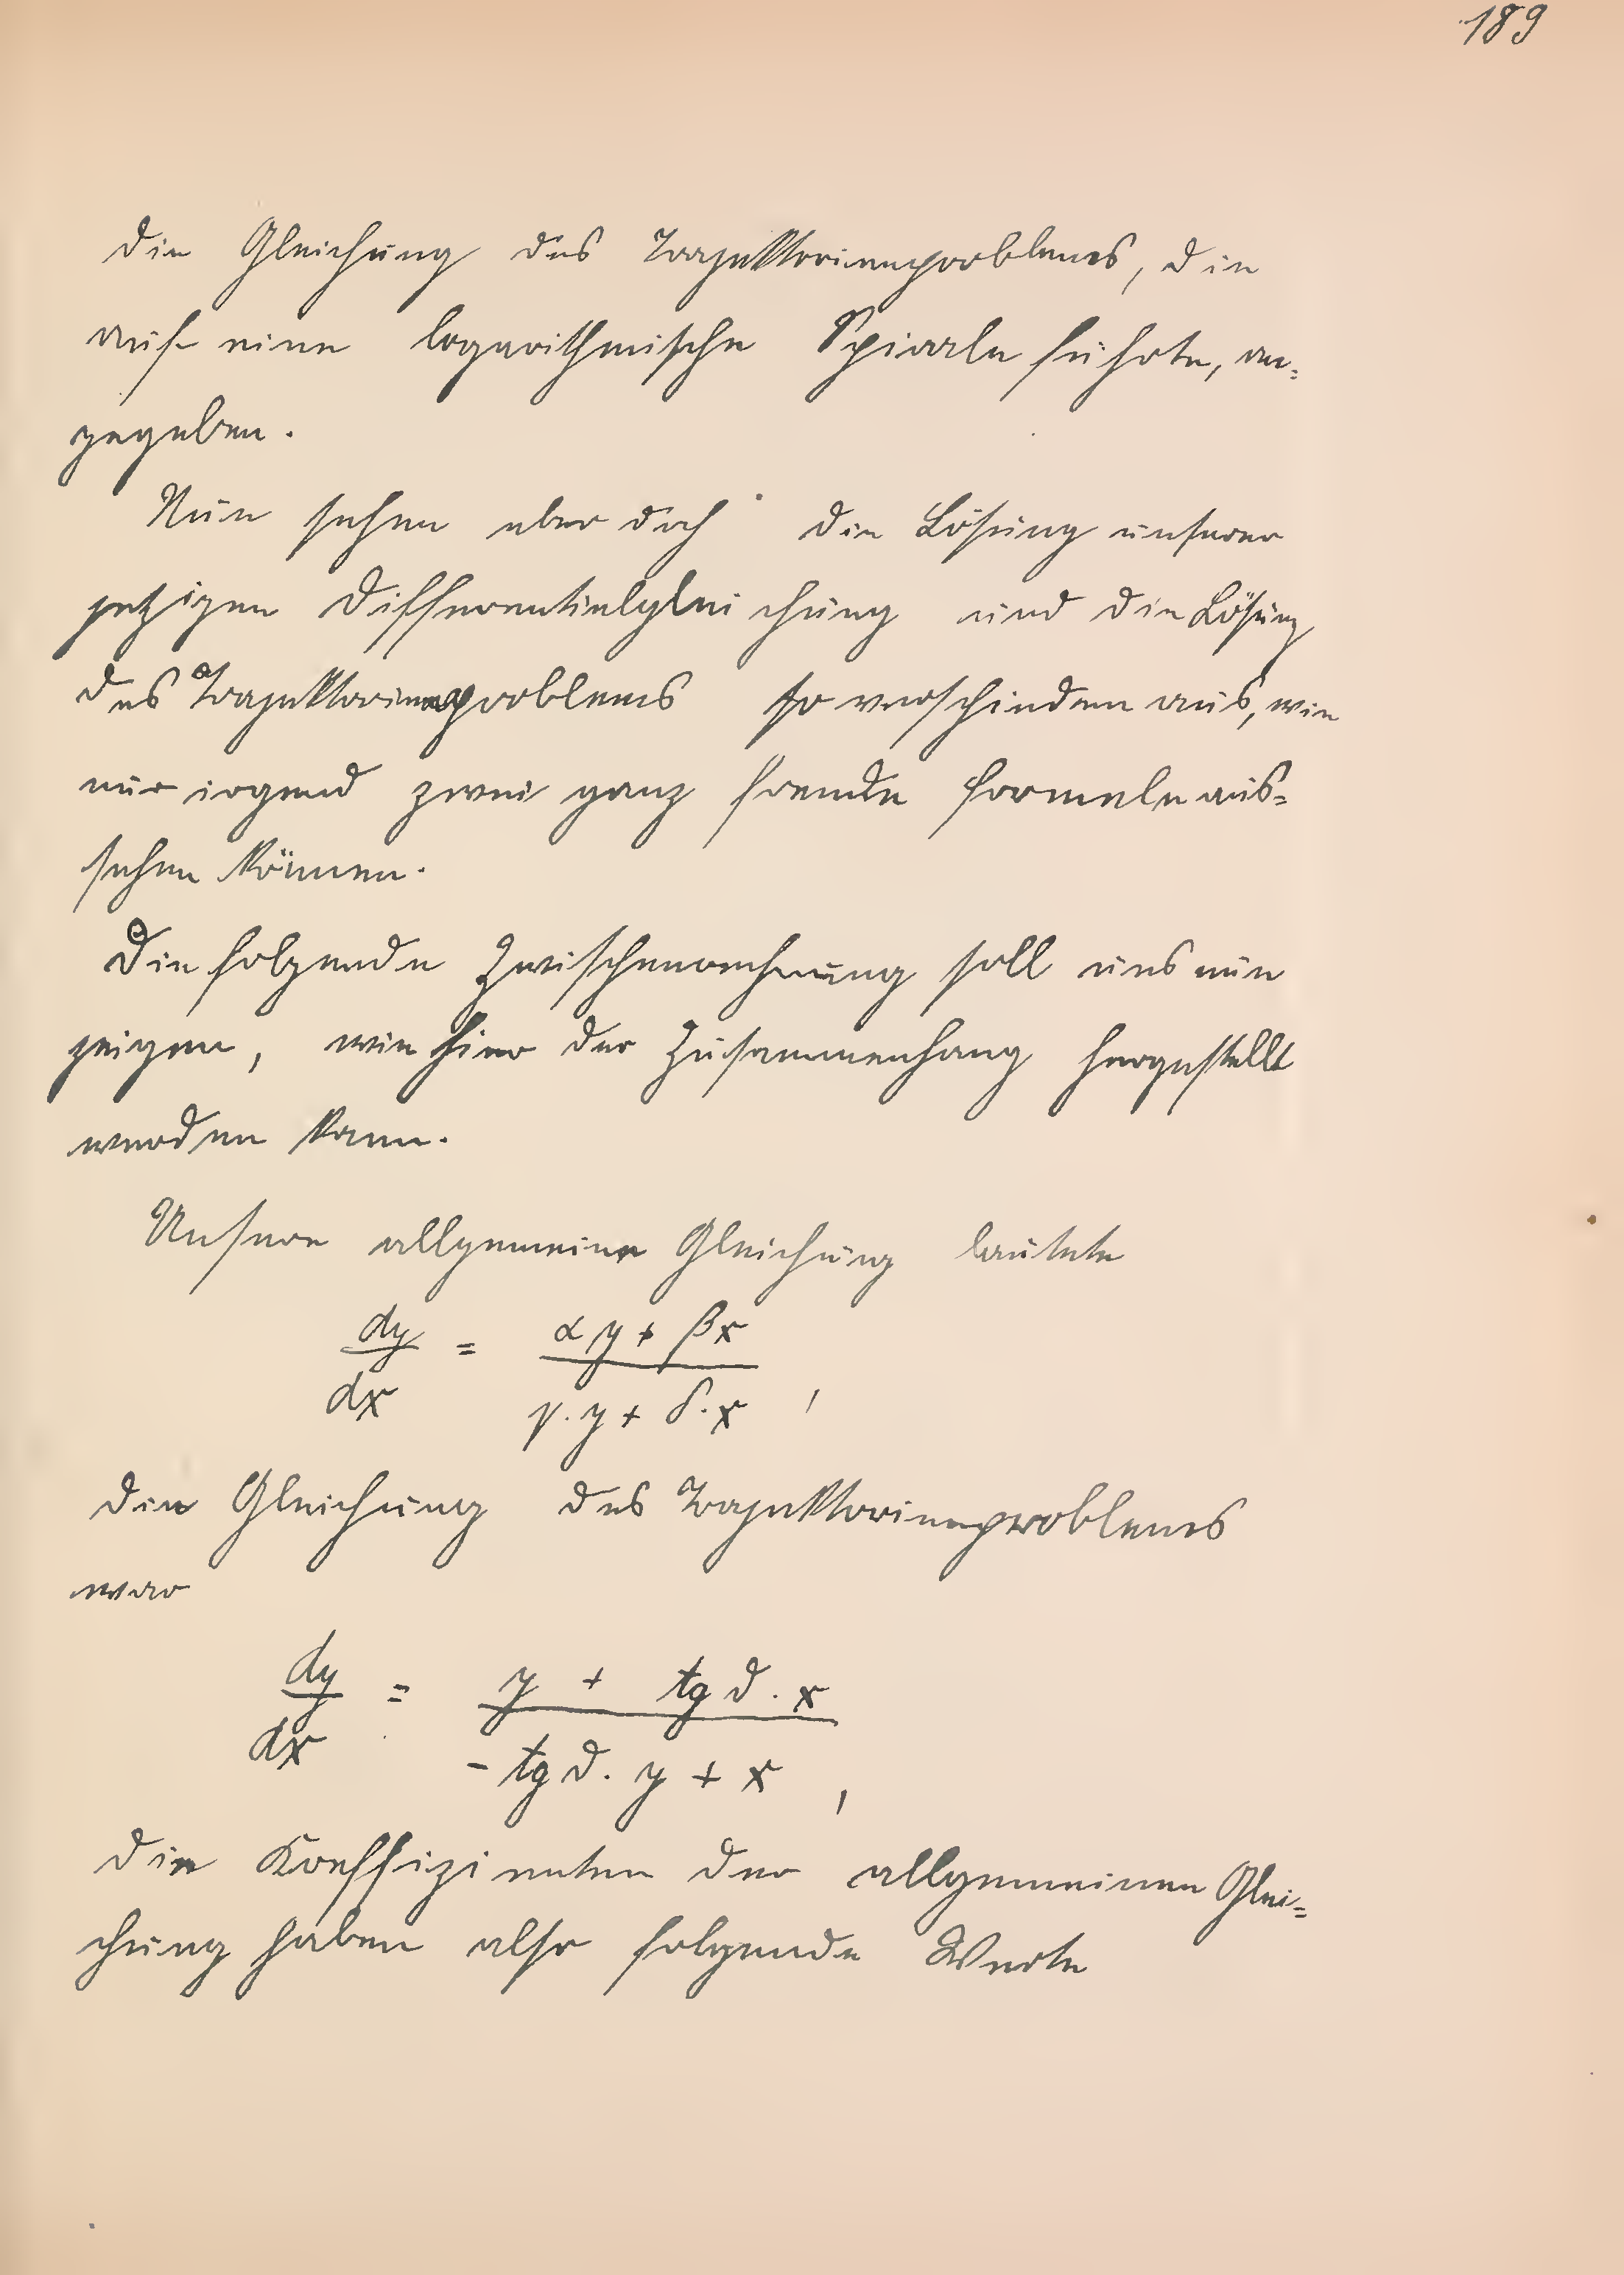 189
die Gleichung des Trajektorienproblems, die
auf eine logarithmische Spirale führte, an=
gegeben.
Nun sehen aber doch die Lösung unserer
jetzigen Differentialgleichung und die Lösung
des Trajektorienproblems so verschieden aus, wie
nur irgend zwei ganz fremde Formeln aus=
sehen können.
Die folgende Zwischenrechnung soll uns nun
zeigen, wie hier der Zusammenhang hergestellt
werden kann.
Unsere allgemeine Gleichung lautete
dy/dx = (αy + βx)/(γ·y + δ·x) ,
die Gleichung des Trajektorienproblems
war
dy/dx = (y + tg ϑ · x)/(- tg ϑ · y + x) ,
die Koeffizienten der allgemeinen Glei=
chung haben also folgende Werte